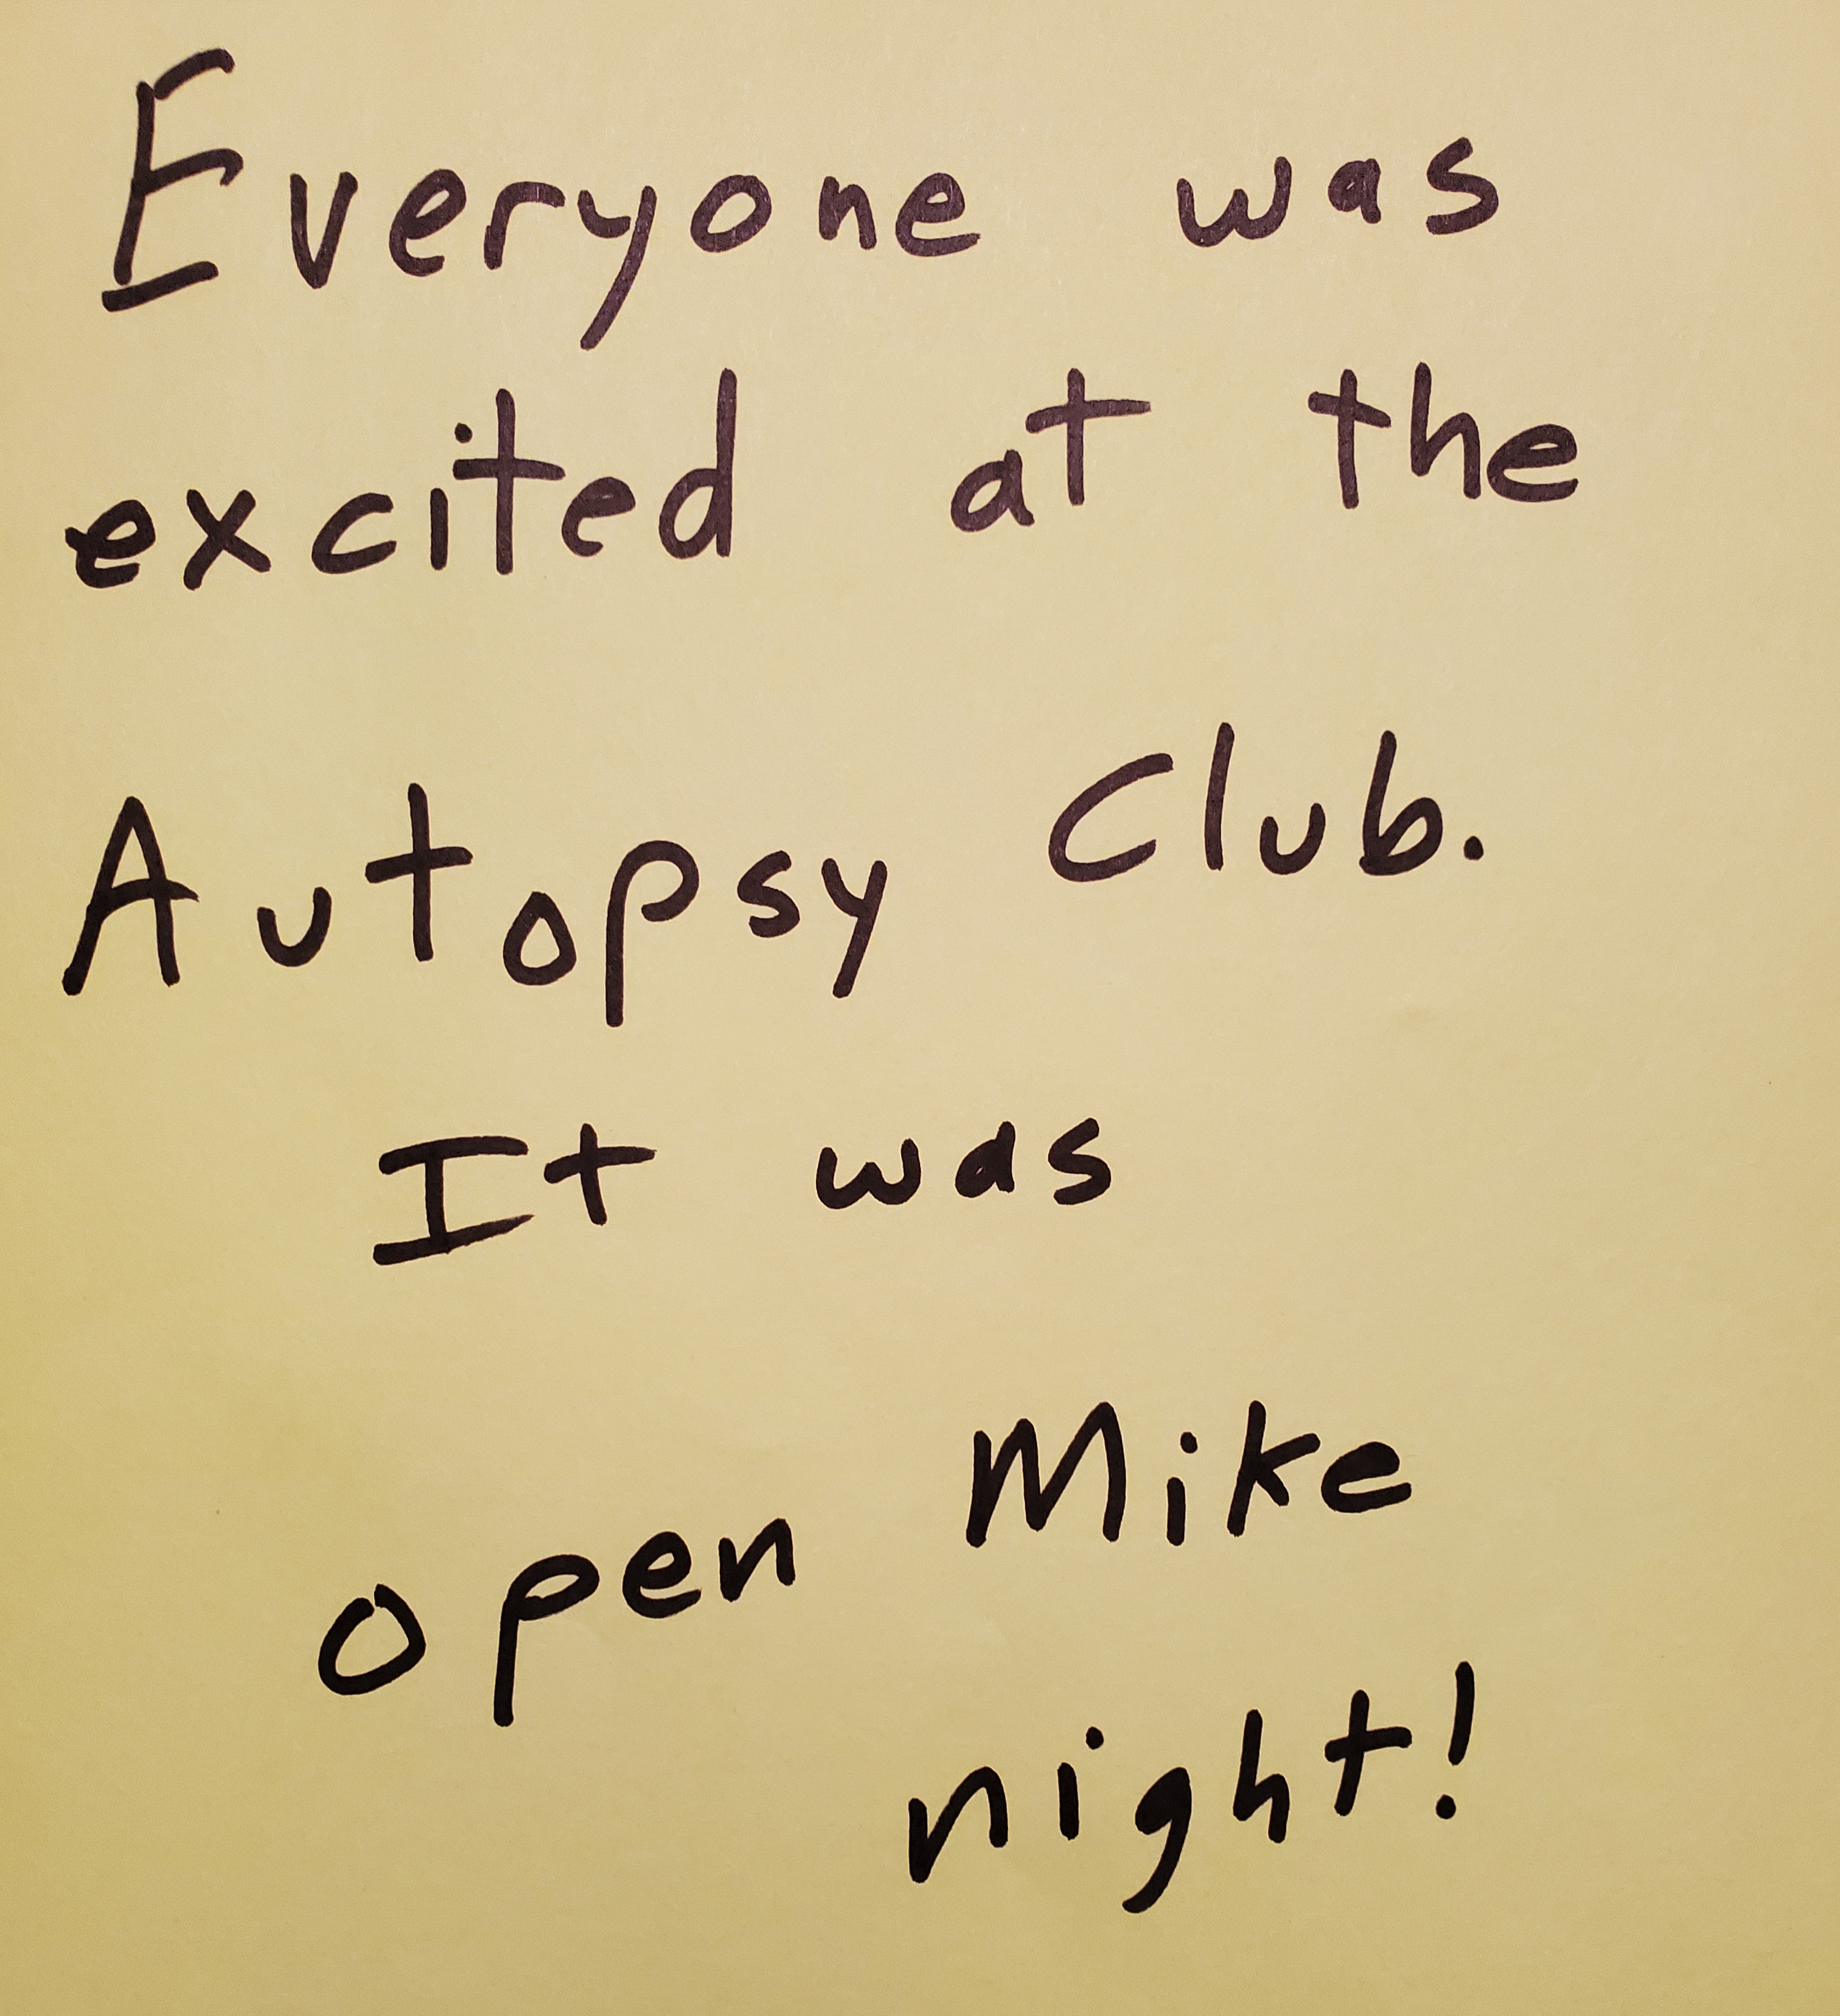 Everyone was
excited at the
Autopsy Club.
It was
open Mike
night!